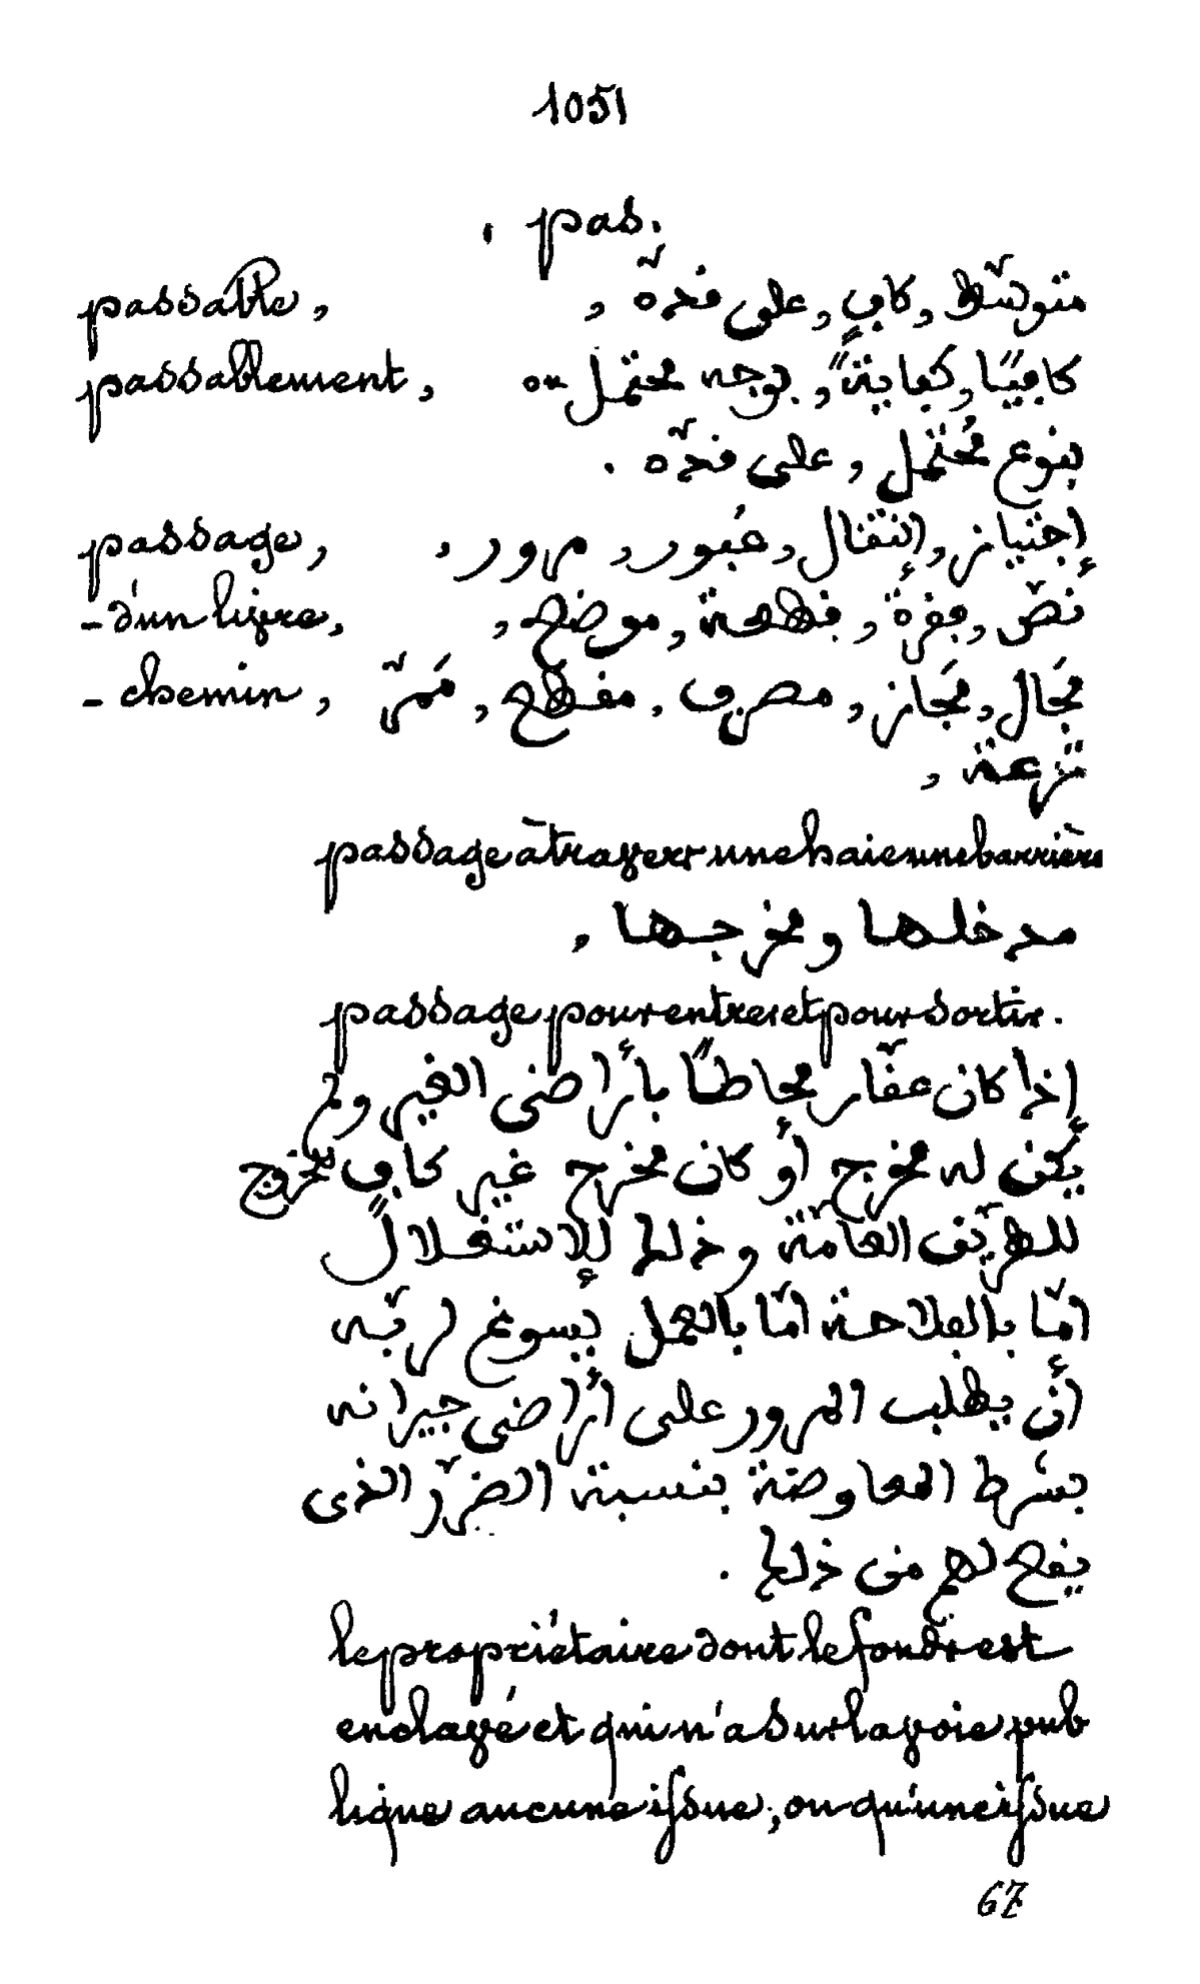 1051
pas.
passable, متوسّط, كافٍ, على قدّه,
passablement, كافيًا, كفايةً, بوجه محتمل ou
بنوع مُحتمل, على قدّه.
passage, إجتياز, إنتقال, عُبور, مرور,
-d'un livre, نصّ, فقرة, قطعة, موضع,
- chemin, مَجال, مَجاز, مصرف, مقطع, مَمرّ
ترعة,
passage à travers une haie une barrière
مدخلها و مخرجها,
passage pour entrer et pour sortir.
إذا كان عقّار محاطًا بأراضى الغير ولم
يكن له مخرج أو كان مخرج غير كافٍ للخروج
للطريق العامّة و ذلك للإستغلال
امّا بالفلاحة امّا بالعمل يسوغ لربّه
أن يطلب المرور على أراضى جيرانه
بشرط المعاوضة بنسبة الضرّر الذى
يقع لهم من ذلك.
le propriétaire dont le fonds est
enclavé et qui n'a sur la voie pub
lique aucune issue, ou qu'une issue
67